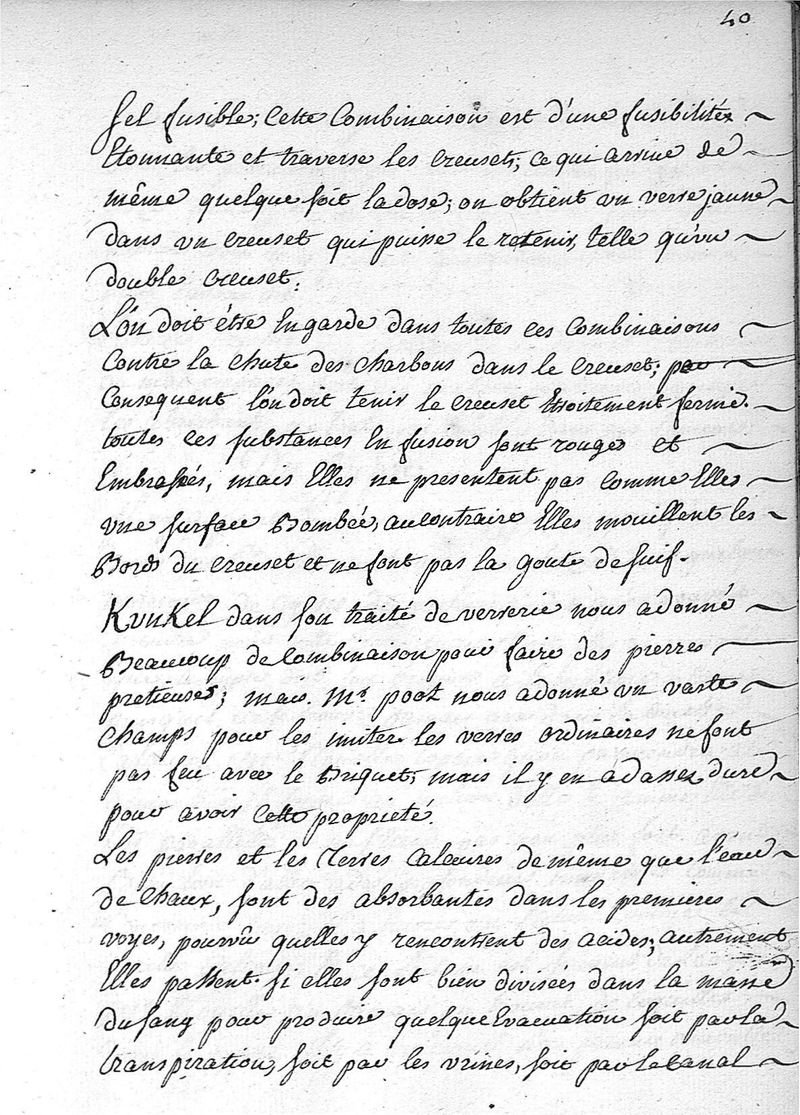 40
Sel fusible; cette Combinaison est d'une fusibilité
Etonnante et traverse les creusets; ce qui arrive de
même quelque soit la dose; on obtient un verre jaune
dans un creuset qui puisse le retenir, telle qu'un
double creuset.
L'on doit être En garde dans toutes ces Combinaisons
Contre la chute des charbons dans le creuset; par
Consequent l'on doit tenir le creuset Etroitement fermé.
toutes ces substances En fusion sont rouges et
Embrasées, mais Elles ne presentent pas comme Elles
une surface Bombée, au contraire Elles mouillent les
Bords du creuset et ne font pas la goute de suif.
Kunkel dans son traité de verrerie nous a donné
Beaucoup de Combinaison pour faire des pierres
pretieuses; mais Mr. poot nous a donné un vaste
Champs pour les imiter les verres ordinaires ne font
pas feu avec le Briquet, mais il y en a d'assez dure
pour avoir cette proprieté.
Les pierres et les Terres Calcaires de même que l'eau
de Chaux, sont des absorbantes dans les premieres
voyes, pourvû quelles y rencontrent des acides; autrement
Elles passent si elles sont bien divisées dans la masse
du sang pour produire quelque Evacuation soit par la
transpiration, soit par les urines, soit par le Canal